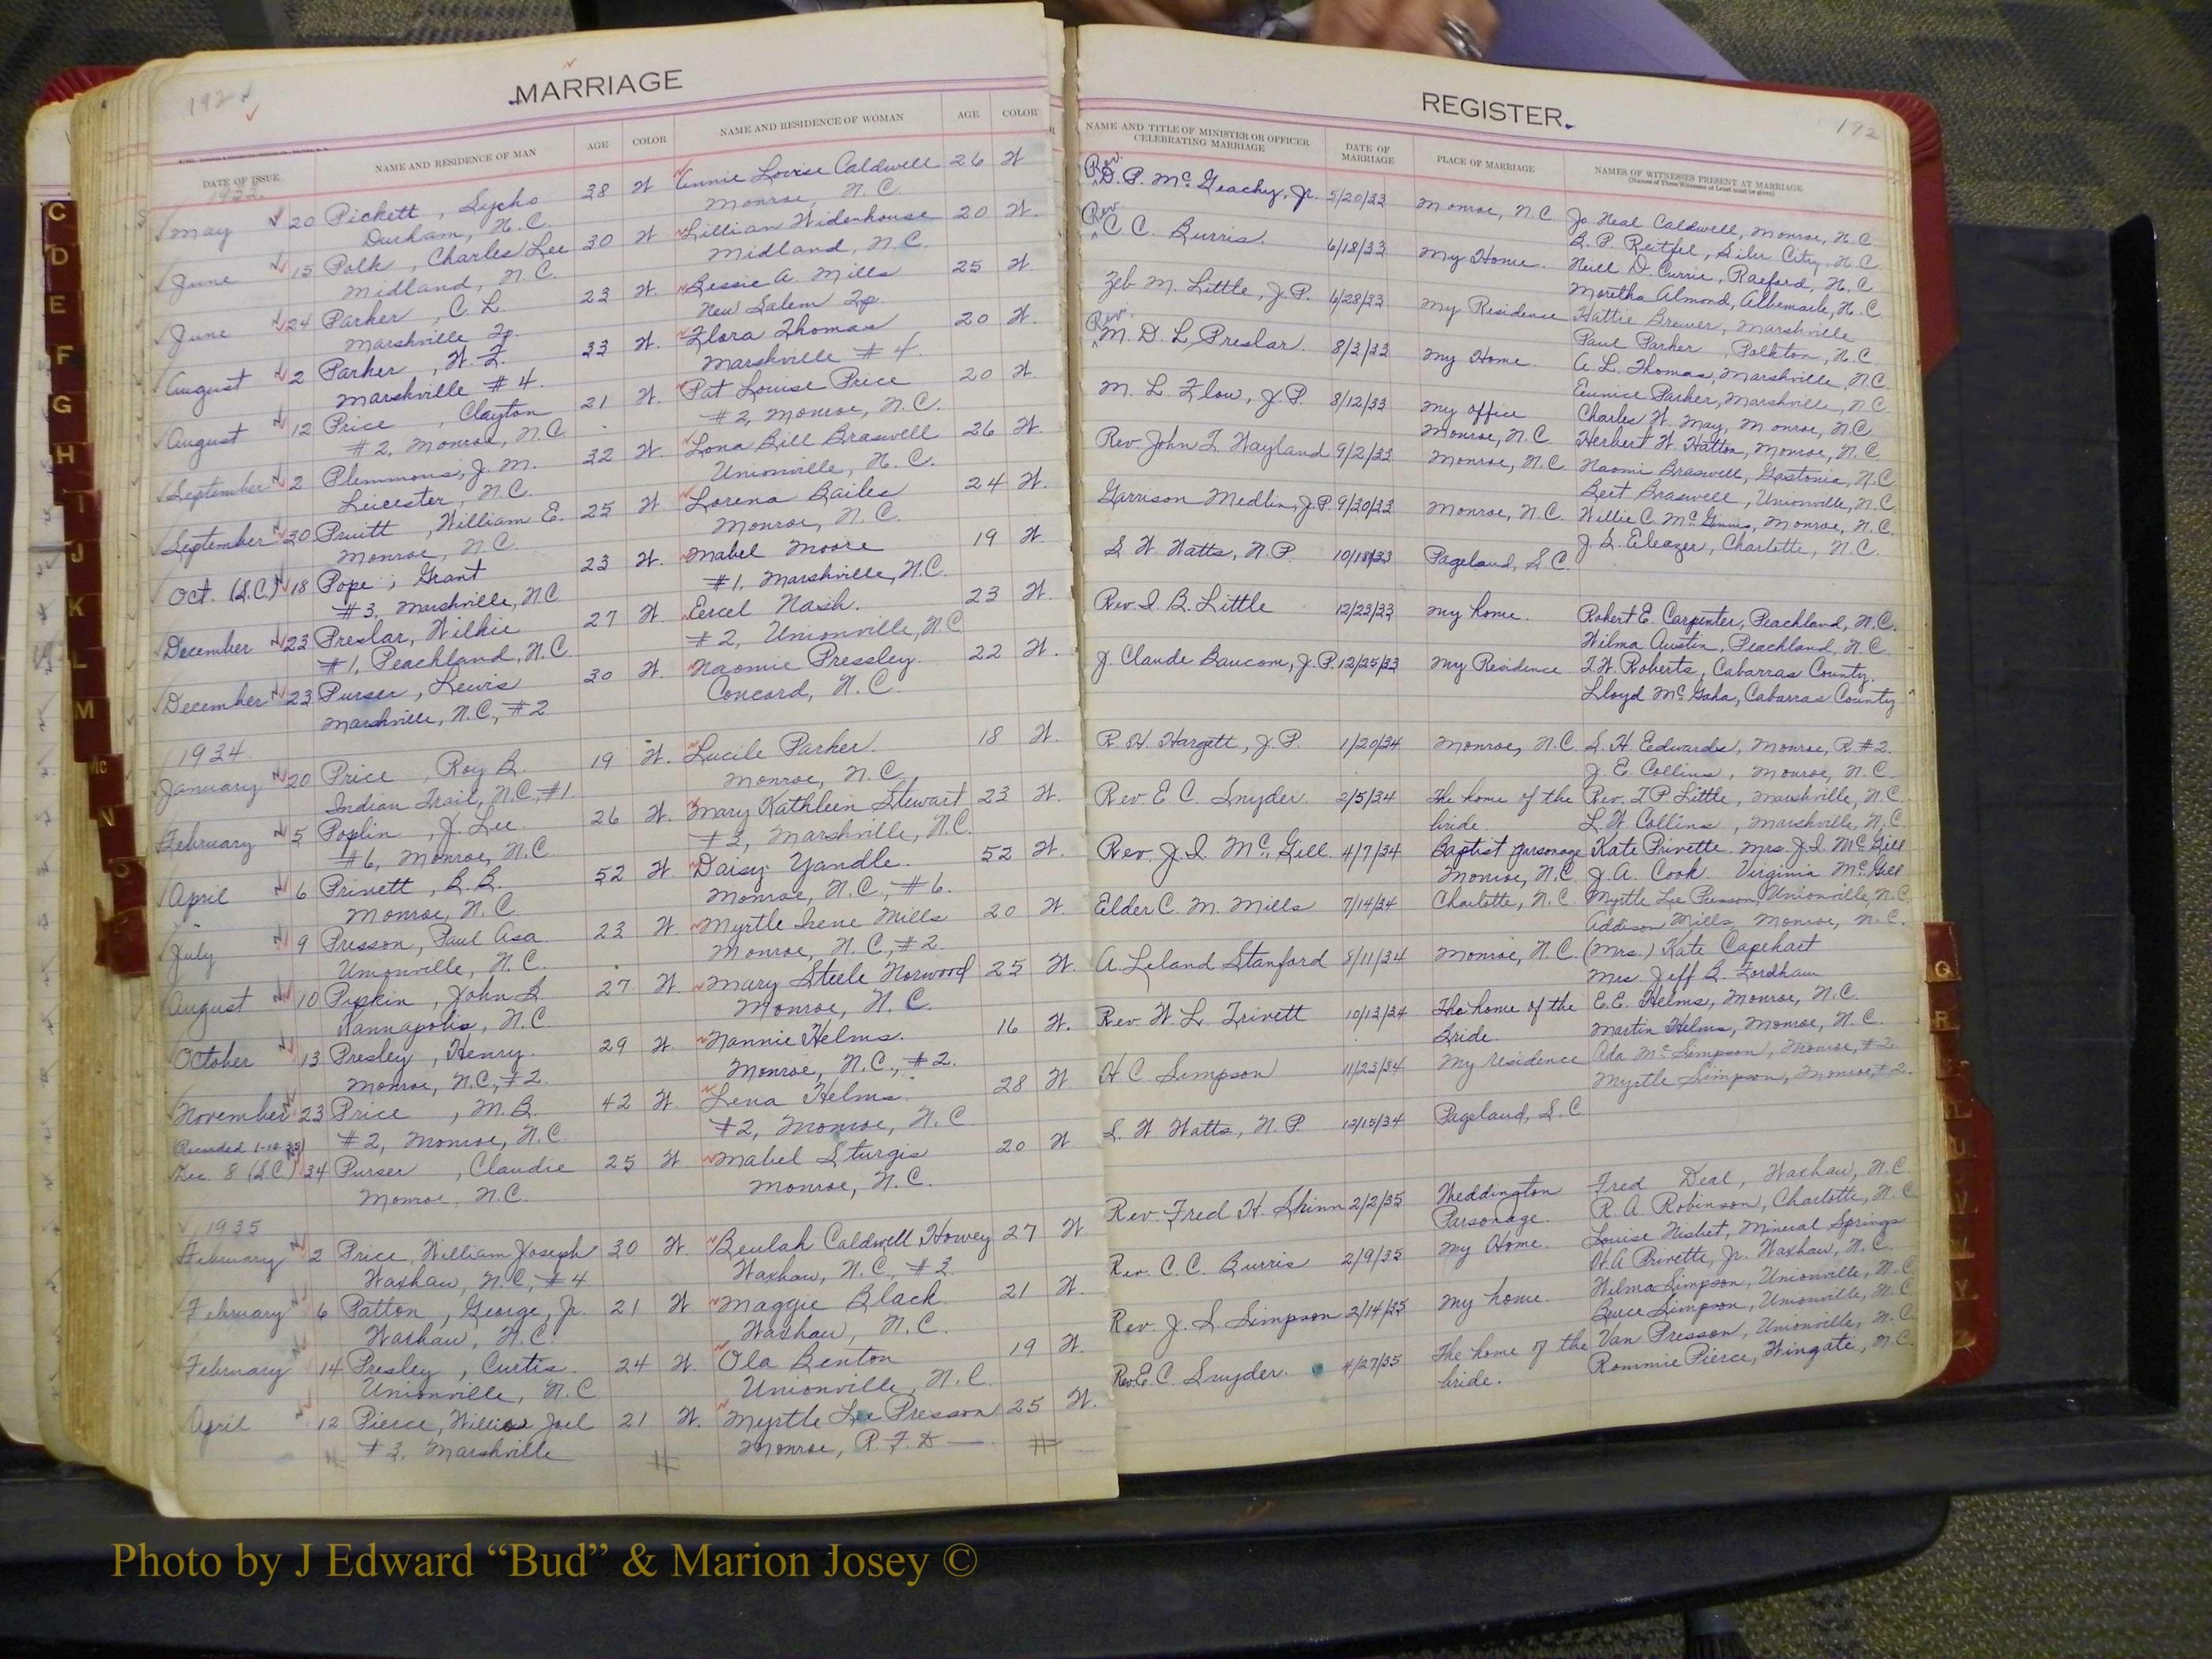 192
MARRIAGE
DATE OF ISSUE NAME AND RESIDENCE OF MAN AGE COLOR NAME AND RESIDENCE OF WOMAN AGE COLOR
1933
May 20 Pickett, Sycho 38 W Annie Louise Caldwell 26 W
Durham, N.C. Monroe, N.C.
June 15 Polk, Charles Lee 30 W Lillian Widenhouse 20 W.
Midland, N.C. Midland, N.C.
June 24 Parker, C. L. 23 W. Bessie A. Mills 25 W.
Marshville Tp. New Salem Tp.
August 2 Parker, W. F. 33 W. Flora Thomas 20 W.
Marshville #4. Marshville #4
August 12 Price, Clayton 21 W. Pat Louise Price 20 W.
#2, Monroe, N.C. #2, Monroe, N.C.
September 2 Plemmons, J. M. 32 W. Lona Bell Braswell 26 W.
Leicester, N.C. Unionville, N.C.
September 30 Pruitt, William E. 25 W. Lorena Bailes 24 W.
Monroe, N.C. Monroe, N.C.
Oct. (S.C.) 18 Pope, Grant 23 W. Mabel Moore 19 W.
#3, Marshville, N.C. #1, Marshville, N.C.
December 23 Preslar, Wilkie 27 W. Eercel Nash. 23 W.
#1, Peachland, N.C. #2, Unionville, N.C.
December 23 Purser, Lewis 30 W. Naomie Pressley. 22 W.
Marshville, N.C., #2 Concord, N.C.
1934
January 20 Price, Roy B. 19 W. Lucile Parker. 18 W.
Indian Trail, N.C., #1. Monroe, N.C.
February 5 Poplin, J. Lee. 26 W. Mary Kathleen Stewart 23 W.
#6, Monroe, N.C. #2, Marshville, N.C.
April 6 Privett, B. B. 52 W. Daisy Yandle. 52 W.
Monroe, N.C. Monroe, N.C., #6.
July 9 Presson, Paul Asa 23 W. Myrtle Irene Mills 20 W.
Unionville, N.C. Monroe, N.C., #2.
August 10 Pipkin, John B. 27 W. Mary Steele Norwood 25 W.
Kannapolis, N.C. Monroe, N.C.
October 13 Presley, Henry. 29 W. Nannie Helms. 16 W.
Monroe, N.C., #2. Monroe, N.C., #2.
November 23 Price, M. B. 42 W. Lena Helms. 28 W
#2, Monroe, N.C. #2, Monroe, N.C.
Recorded 1-10-35
Dec. 8 (S.C.) 34 Purser, Claudie 25 W. Mabel Sturgis 20 W
Monroe, N.C. Monroe, N.C.
1935
February 2 Price, William Joseph 30 W. Beulah Caldwell Howey 27 W
Waxhaw, N.C., #4 Waxhaw, N.C., #3.
February 6 Patton, George, Jr. 21 W Maggie Black. 21 W.
Waxhaw, N.C. Waxhaw, N.C.
February 14 Presley, Curtis. 24 W. Ola Benton 19 W.
Unionville, N.C. Unionville, N.C.
April 12 Pierce, Willie Joel 21 W. Myrtle Lee Presson 25 W.
#3, Marshville Monroe, R.F.D.
REGISTER.
192
NAME AND TITLE OF MINISTER OR OFFICER CELEBRATING MARRIAGE DATE OF MARRIAGE PLACE OF MARRIAGE NAMES OF WITNESSES PRESENT AT MARRIAGE
(Names of Three Witnesses at Least must be given)
Rev. D. P. McGeachy, Jr. 5/20/33 Monroe, N.C. Jo Neal Caldwell, Monroe, N.C.
B. P. Reitfel, Siler City, N.C.
Rev. C. C. Burris. 6/18/33 My Home. Neill D. Currie, Raeford, N.C.
Moretha Almond, Albemarle, N.C.
Zeb M. Little, J.P. 6/28/33 My Residence Hattie Brewer, Marshville
Paul Parker, Polkton, N.C.
Rev. M. D. L. Preslar. 8/3/33 My Home. A. L. Thomas, Marshville, N.C.
Eunice Parker, Marshville, N.C.
M. L. Flow, J.P. 8/12/33 My office Charles W. May, Monroe, N.C.
Monroe, N.C. Herbert W. Hatton, Monroe, N.C.
Rev. John T. Wayland 9/2/33 Monroe, N.C. Naomi Braswell, Gastonia, N.C.
Bert Braswell, Unionville, N.C.
Garrison Medlin, J.P. 9/30/33 Monroe, N.C. Willie C. McGinnis, Monroe, N.C.
J. L. Eleazer, Charlotte, N.C.
S. W. Watts, N.P. 10/18/33 Pageland, S.C.
Rev. I. B. Little 12/23/33 My home. Robert E. Carpenter, Peachland, N.C.
Wilma Austin, Peachland, N.C.
J. Claude Baucom, J.P. 12/25/33 My Residence T. W. Roberts, Cabarras County.
Lloyd McGaha, Cabarras County
R. H. Hargett, J.P. 1/20/34 Monroe, N.C. S. H. Eedwards, Monroe, R #2.
J. E. Collins, Monroe, N.C.
Rev. E. C. Snyder. 2/5/34 The home of the Rev. T. P. Little, Marshville, N.C.
bride L. W. Collins, Marshville, N.C.
Rev. J. I. McGill. 4/7/34 Baptist parsonage Kate Privette Mrs. J. I. McGill
Monroe, N.C. J. A. Cook. Virginia McGill
Elder C. M. Mills 7/14/34 Charlotte, N.C. Myrtle Lee Presson, Unionville, N.C.
Addison Mills, Monroe, N.C.
A. Leland Stanford 8/11/34 Monroe, N.C. (Mrs.) Kate Capehart
Mrs. Jeff B. Fordham
Rev. W. L. Trivett 10/13/34 The home of the E. E. Helms, Monroe, N.C.
Bride. Martin Helms, Monroe, N.C.
H. C. Simpson 11/23/34 My residence Ada Mc Simpson, Monroe, #2.
Myrtle Simpson, Monroe, #2.
S. W. Watts, N.P. 12/15/34 Pageland, S.C.
Rev. Fred H. Shinn 2/2/35 Weddington Fred Deal, Waxhaw, N.C.
Parsonage. R. A. Robinson, Charlotte, N.C.
Louise Nisbet, Mineral Springs
Rev. C. C. Burris 2/9/35 My Home. H. A. Privette, Jr. Waxhaw, N.C.
Rev. J. S. Simpson 2/14/35 My home. Wilma Simpson, Unionville, N.C.
Bruce Simpson, Unionville, N.C.
Rev. E. C. Snyder. 4/27/35 The home of the Van Presson, Unionville, N.C.
bride. Rommie Pierce, Wingate, N.C.
C
D
E
F
G
H
I
J
K
L
M
Mc
N
O
Q
R
U
V
Y
Photo by J Edward “Bud” & Marion Josey ©